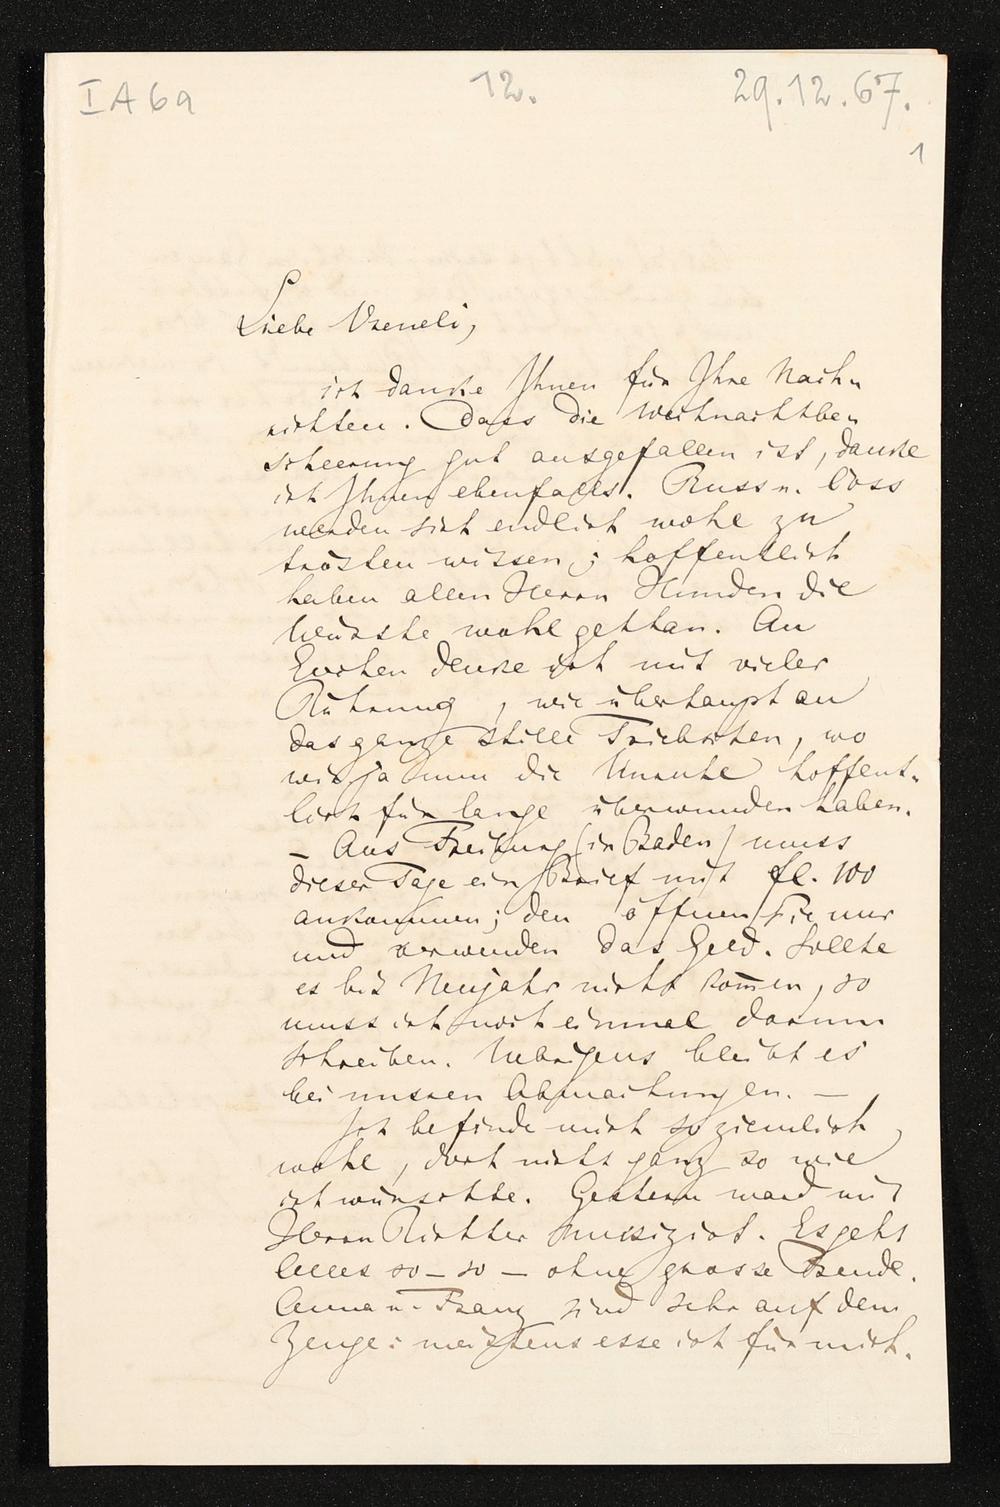 I A 6a 12. 29.12.67.
1
Liebe Vreneli,
ich danke Ihnen für Ihre Nach-
richten. Dass die Weihnachtbe-
scheerung gut ausgefallen ist, danke
ich Ihnen ebenfalls. Russ u.
werden sich endlich wohl zu
trösten wissen; hoffentlich
haben allen Herrn Hunden die
Würste wohl gethan. An
Evchen denke ich mit vieler
Rührung, wie überhaupt an
das ganze stille Triebschen, wo
wir ja nun die Unruhe hoffent-
lich für lange überwunden haben.
– Aus Freiburg (in Baden) muss
dieser Tage ein Brief mit fl. 100
ankommen; den öffnen Sie nur
und verwenden das Geld. Sollte
es bis Neujahr nicht kom̅en, so
muss ich noch einmal darum
schreiben. Uebrigens bleibt es
bei unsren Abmachungen. —
Ich befinde mich so ziemlich
wohl, doch nicht ganz so wie
ich wünschte. Gestern ward mit
Herrn Richter musizirt. Es geht
Alles so – so – ohne grosse Freude.
Anna u. Franz sind sehr auf dem
Zeuge: meistens esse ich für mich.